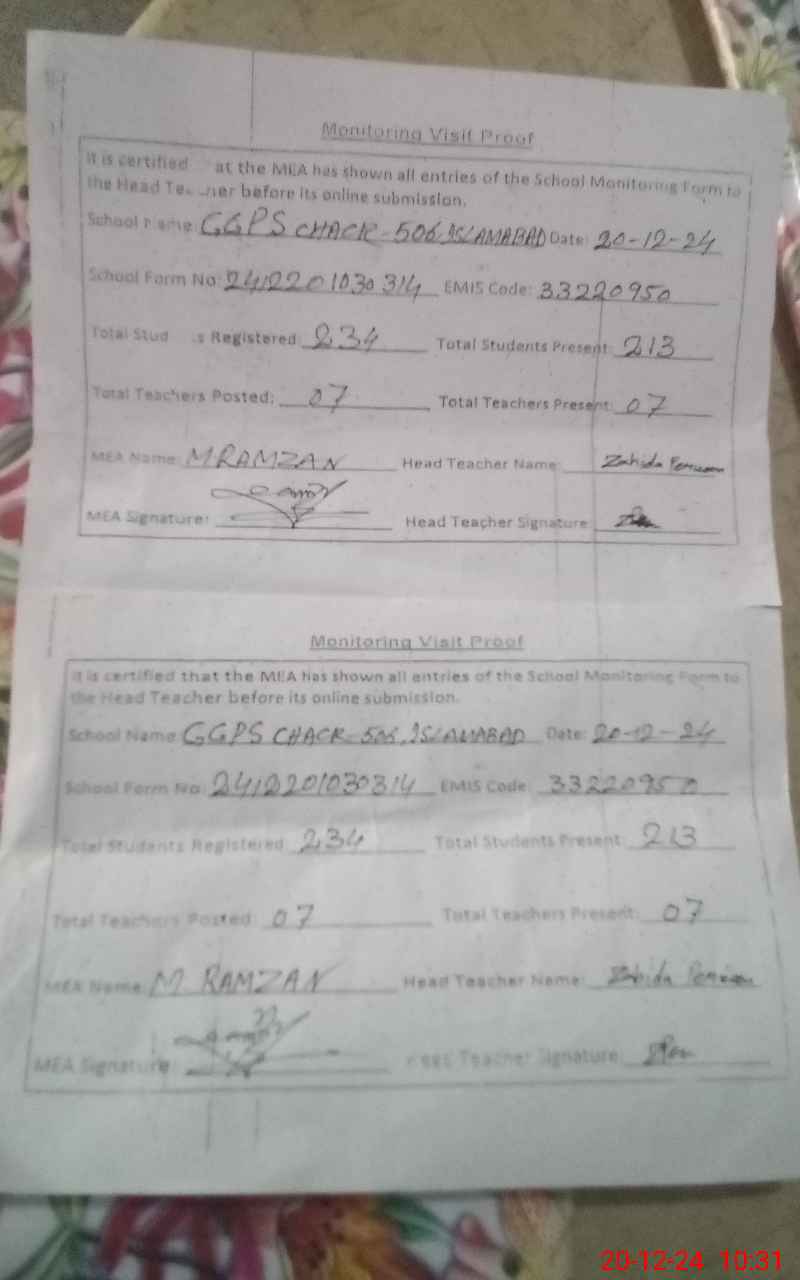 Monitoring Visit Proof
It is certified at the MEA has shown all entries of the School Monitoring Form to
the Head Te ner before its online submission.
School N ame: GGPS CHACK-506, ISLAMABAD Date: 20-12-24
School Form No: 2412201030314 EMIS Code: 33220950
Total Stud s Registered: 234 Total Students Present: 213
Total Teachers Posted: 07 Total Teachers Present: 07
MEA Name: M RAMZAN Head Teacher Name: Zahida
MEA Signature: Head Teacher Signature:
Monitoring Visit Proof
It is certified that the MEA has shown all entries of the School Monitoring Form to
the Head Teacher before its online submission.
School Name: GGPS CHACK-506, ISLAMABAD Date: 20-12-24
School Form No: 2412201030314 EMIS Code: 33220950
Total Students Registered: 234 Total Students Present: 213
Total Teachers Posted: 07 Total Teachers Present: 07
MEA Name: M RAMZAN Head Teacher Name: Zahida
MEA Signature: Teacher Signature:
20-12-24 10:31